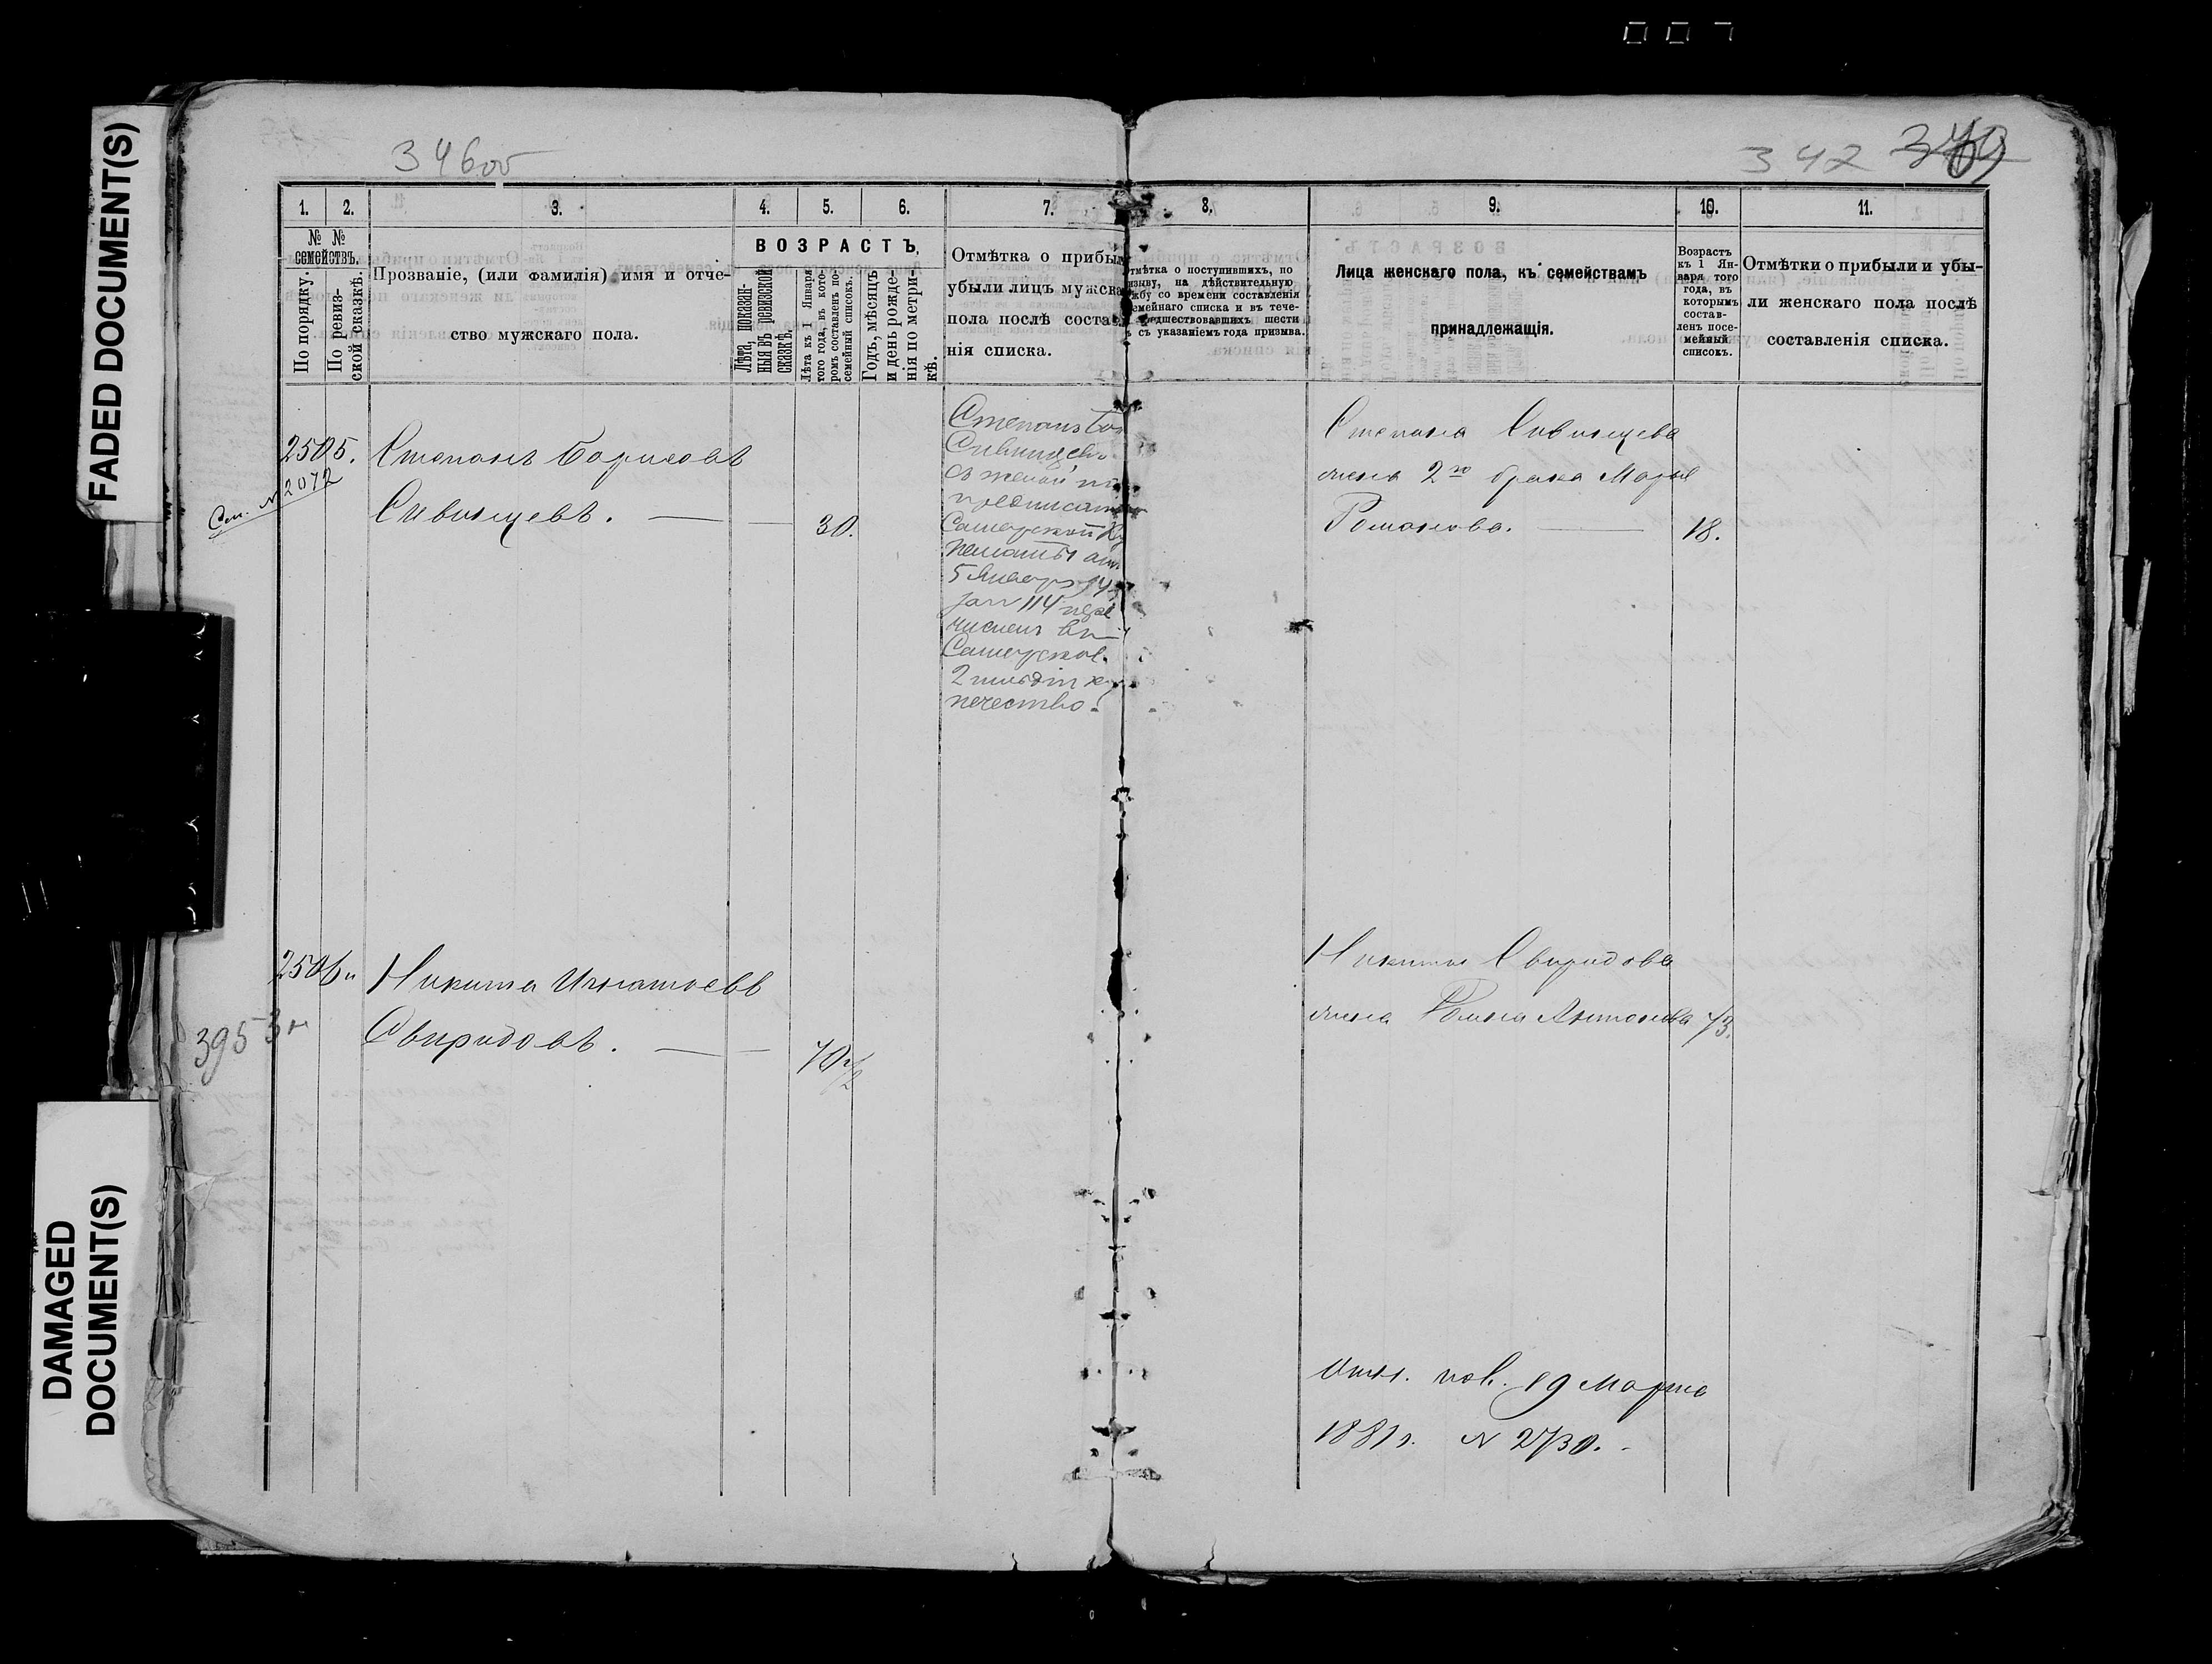 007
FADED DOCUMENT(S)
DAMAGED
DOCUMENT(S)
346об
342
1. 2. 3. 4. 5. 6. 7. 8. 9. 10. 11.
№ №
семействъ.
По порядку.
По ревиз-
ской сказкѣ.
Прозваніе, (или фамилія) имя и отче-
ство мужскаго пола.
ВОЗРАСТЪ,
Лѣта, показан-
ныя въ ревизской
сказкѣ.
Лѣта къ 1 Января
того года, въ кото-
ромъ составленъ по-
семейный списокъ.
Годъ, мѣсяцъ
и день рожде-
нія по метри-
кѣ.
Отмѣтка о прибыл
убыли лицъ мужска
пола послѣ соста
нія списка.
тмѣтка о поступившихъ, по
изыву, на дѣйствительную
жбу со времени составленія
семейнаго списка и въ тече-
едшествовавшихъ шести
ъ съ указаніемъ года призыва.
Лица женскаго пола, къ семействамъ
принадлежащія.
Возрастъ
къ 1 Ян-
варя того
года, въ
которымъ
состав-
ленъ посе-
мейный
списокъ.
Отмѣтки о прибыли и убы-
ли женскаго пола послѣ
составленія списка.
2505. Степанъ Борисовъ
См. № 2072
Сивинцевъ. — — 30.
Степанъ Бо
Сивинцевъ
съ женой по
предписан
Самарской К
Палаты от
5 Января 74
за № 114 пере
численъ въ
Самарское
2 гильдіи ку
печество.
Степана Сивинцева
жена 2го брака Марья
Романова. — 18.
2506 Никита Игнатьевъ
3953
Свиридовъ. — — 70 1/2
Никиты Свиридова
жена Антонова 73.
пов. 19 Марта
1881г. № 2730.